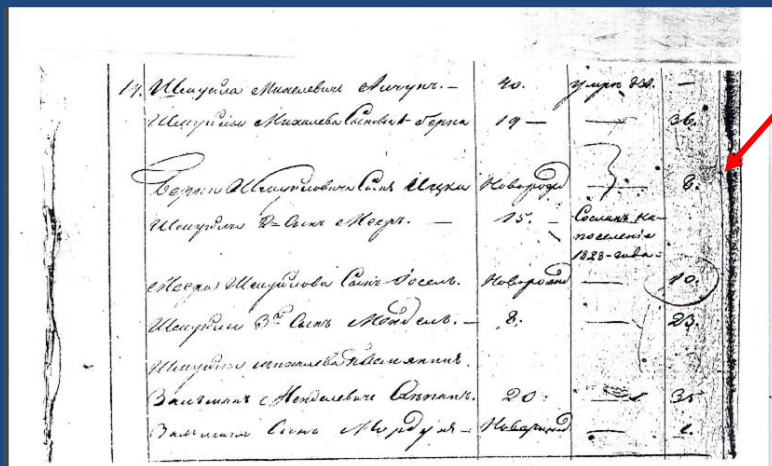 17. Шмуйла Михелевичъ — 40. умре —
Шмуйлы Михилева Сыновья 1- Берка 19 — — 36.
Берки Шмуйловича Сынъ Ицка Новорожд — 8.
Шмуйлы 2-Сынъ Меер. — 15. — Сосланъ на
поселение
1823-года.
Меера Шмуйлова Сынъ Иосель. Новорожд — 10.
Шмуйлы 3й Сынъ Мендель. — 8. — 23.
Шмуйлы Михилева племянникъ
Зальманъ Менделевичъ 20. — 35
Зальмана Сынъ Мордух — Новорожд —